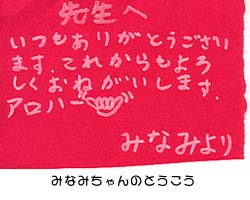 先生へ
いつもありがとうござい
ます。これからもよろ
しくおねがいします。
アロハー
みなみより
みなみちゃんのとうこう